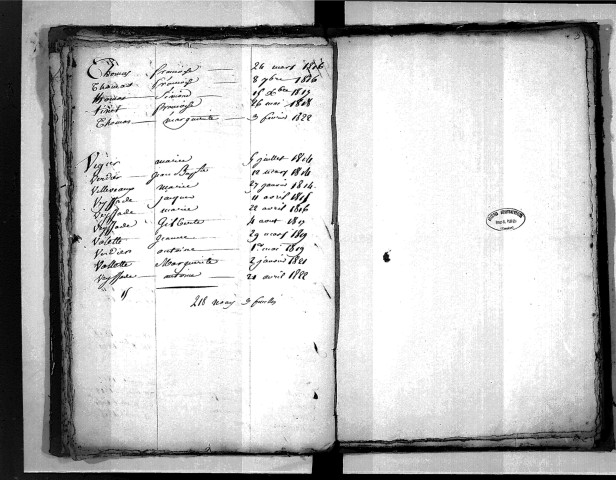 Thomas françoise 26 mars 1816
Thomas françoise 8 9bre 1816
Simeon 15 Xbre 1817
françoise 26 mai 1818
Thomas marguerite 3 fevrier 1822
Vigier marie 5 juillet 1814
Verdier jean 10 mars 1814
marie 27 janvier 1814
Veyssade jacques 11 avril 1815
Veyssade marie 22 avril 1816
Veyssade Gilberte 4 aout 1817
Valette jeanne 29 mars 1819
Verdier antoine 1er mai 1819
Vallette Marguerite 2 janvier 1821
Veyssade antoine 21 avril 1822
15
218 noms 3 feuilles